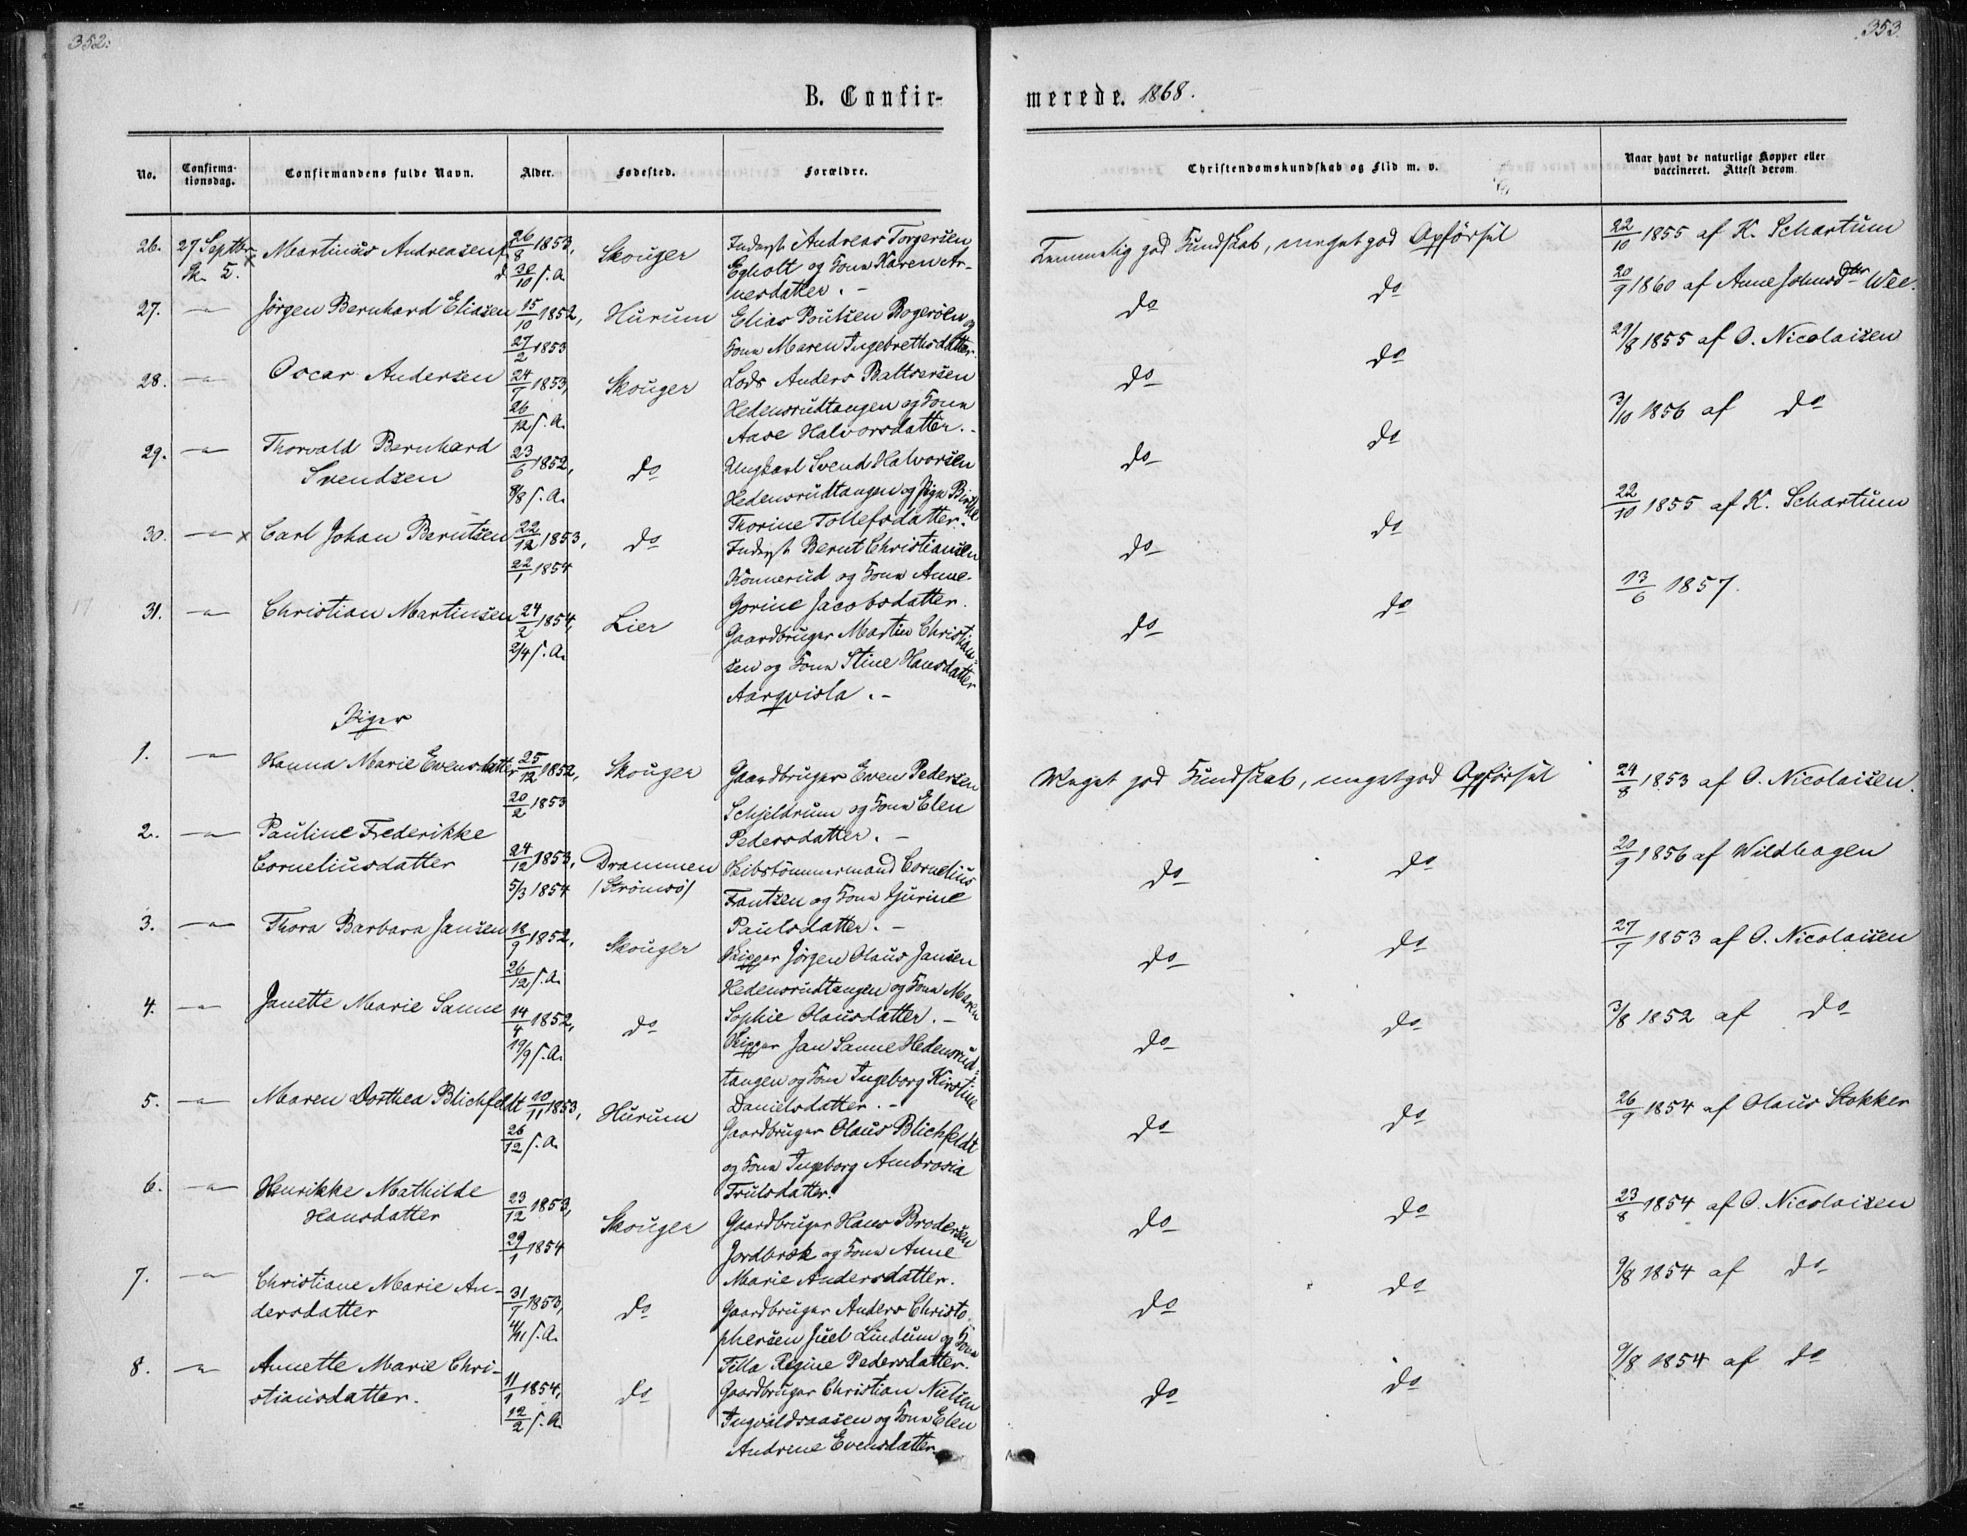 352.
353.
B. Confirmerede. 1868.
No.
Confirmationsdag.
Confirmandens fulde Navn.
Alder.
Fødested.
Forældre.
Christendomskundskab og Flid m. v.
Naar havt de naturlige Kopper eller vaccineret. Attest derom
26. 27 Septbr Martinus Andreasen f 26/8 1853, d 30/10 s. A. Skouger
Inderst Andreas Torgersen
Egholt og Kone Karen Ar-
nesdatter. -
Temmelig god Kundskab, meget god Opførsel
22/10 1855 af K. Schartum
27. -"- Jørgen Bernhard Eliasen 15/10 1852, 27/2 1853 Hurum
Elias Poulsen Bogerøen og
Kone Maren Ingebrethsdatter.
do do
20/9 1860 af Anne Johnsdtr Wee.
28. -"- Oscar Andersen 24/7 1853, 26/12 s. A. Skouger
Lods Anders Baltsersen
Hedensrudtangen og Kone
Aase Halvorsdatter. -
do do
29/8 1855 af O. Nicolaisen
29. -"- Thorvald Bernhard
Svendsen 23/6 1852, 8/8 s. A. do
Ungkarl Svend Halvorsen
Hedensrudtangen og Pige Birthe
Thorine Tollefsdatter.
do do
3/10 1856 af do
30. -"- x Carl Johan Berntsen 22/12 1853, 22/1 1854 do
Inderst Bernt Christiansen
Konnerud og Kone Anne
Gorine Jacobsdatter.
do do
22/10 1855 af K. Schartum
31. -"- Christian Martinsen 24/2 1854, 2/4 s. A. Lier
Gaardbruger Martin Christian-
sen og Kone Stine Hansdatter
Aarqvisla. -
do do
13/6 1857.
Piger
1. -"- Hanna Marie Evensdatter 25/12 1852, 20/2 1853 Skouger
Gaardbruger Even Pedersen
Schjeldrum og Kone Elen
Pedersdatter. -
Meget god Kundskab, meget god Opførsel
24/8 1853 af O. Nicolaisen.
2. -"- Pauline Frederikke
Corneliusdatter 24/12 1853, 5/3 1854 Drammen
/Strømsø/
Skibstømmermand Cornelius
Frantsen og Kone Gurine
Paulsdatter. -
do do
20/9 1856 af Wildhagen
3. -"- Thora Barbara Jansen 18/9 1852, 26/12 s. A. Skouger
Skipper Jørgen Olaus Jansen
Hedensrudtangen og Kone Maren
Sophie Olausdatter. -
do do
27/7 1853 af O. Nicolaisen
4. -"- Janette Marie Sanne 14/4 1852, 19/9 s. A. do
Skipper Jan Sanne Hedensrud-
tangen og Kone Ingeborg Kirstine
Danielsdatter. -
do do
3/8 1852 af do
5. -"- Maren Dorthea Blichfeldt 10/11 1853, 26/12 s. A. Hurum
Gaardbruger Olaus Blichfeldt
og Kone Ingeborg Ambrosia
Trulsdatter.
do do
26/9 1854 af Olaus Stokker
6. -"- Henrikke Mathilde
Hansdatter 23/12 1853, 29/1 1854 Skouger
Gaardbruger Hans Brodersen
Jordbræk og Kone Anne
Marie Andersdatter.
do do
23/8 1854 af O. Nicolaisen
7. -"- Christiane Marie An-
dersdatter 31/7 1853, 4/11 s. A. do
Gaardbruger Anders Christo-
phersen Juel Lindum og Kone
Tilla Regine Pedersdatter.
do do
9/8 1854 af do
8. -"- Annette Marie Chri-
stiansdatter. 11/1 1854, 12/2 s. A. do
Gaardbruger Christian Nielsen
Ingvaldsaasen og Kone Elen
Andrene Evensdatter
do do
9/8 1854 af do